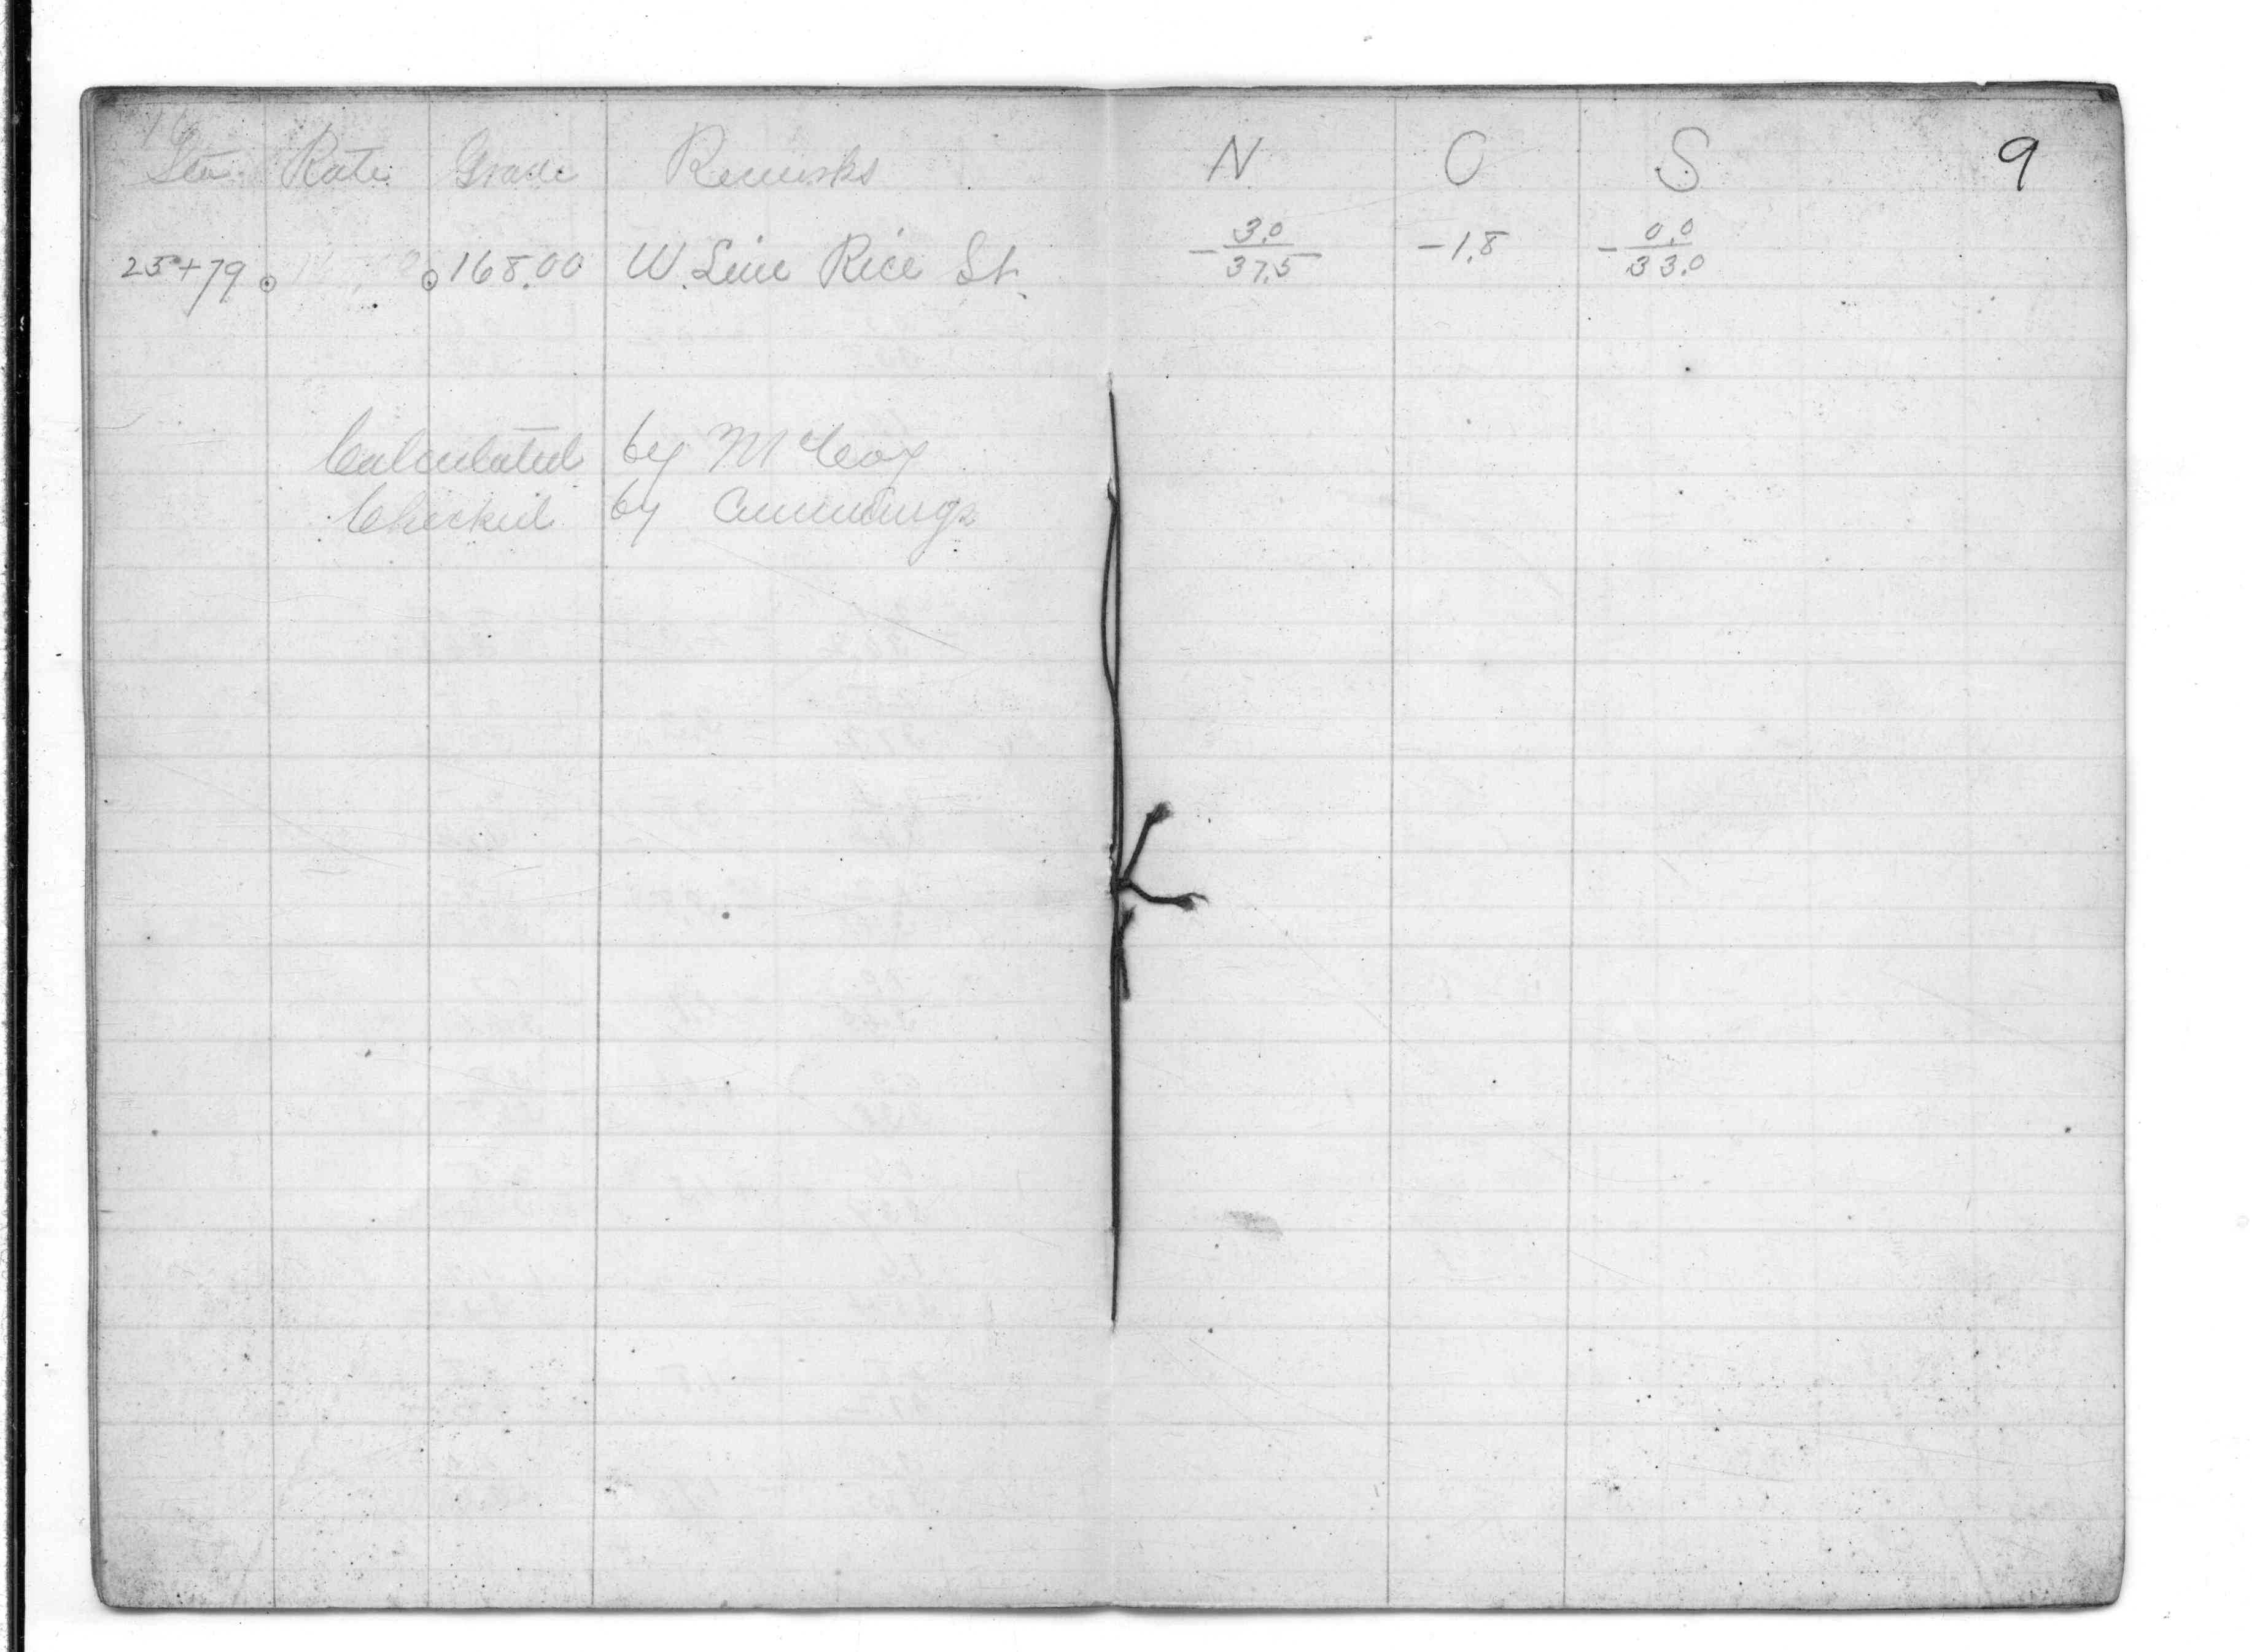 Sta. Rate Grade Remarks N O S 9
25+79 168.00 W. Line Rice St. -3.0/37.5 -1.8 -0.0/33.0
Calculated by McCoy
Checked by Cummings